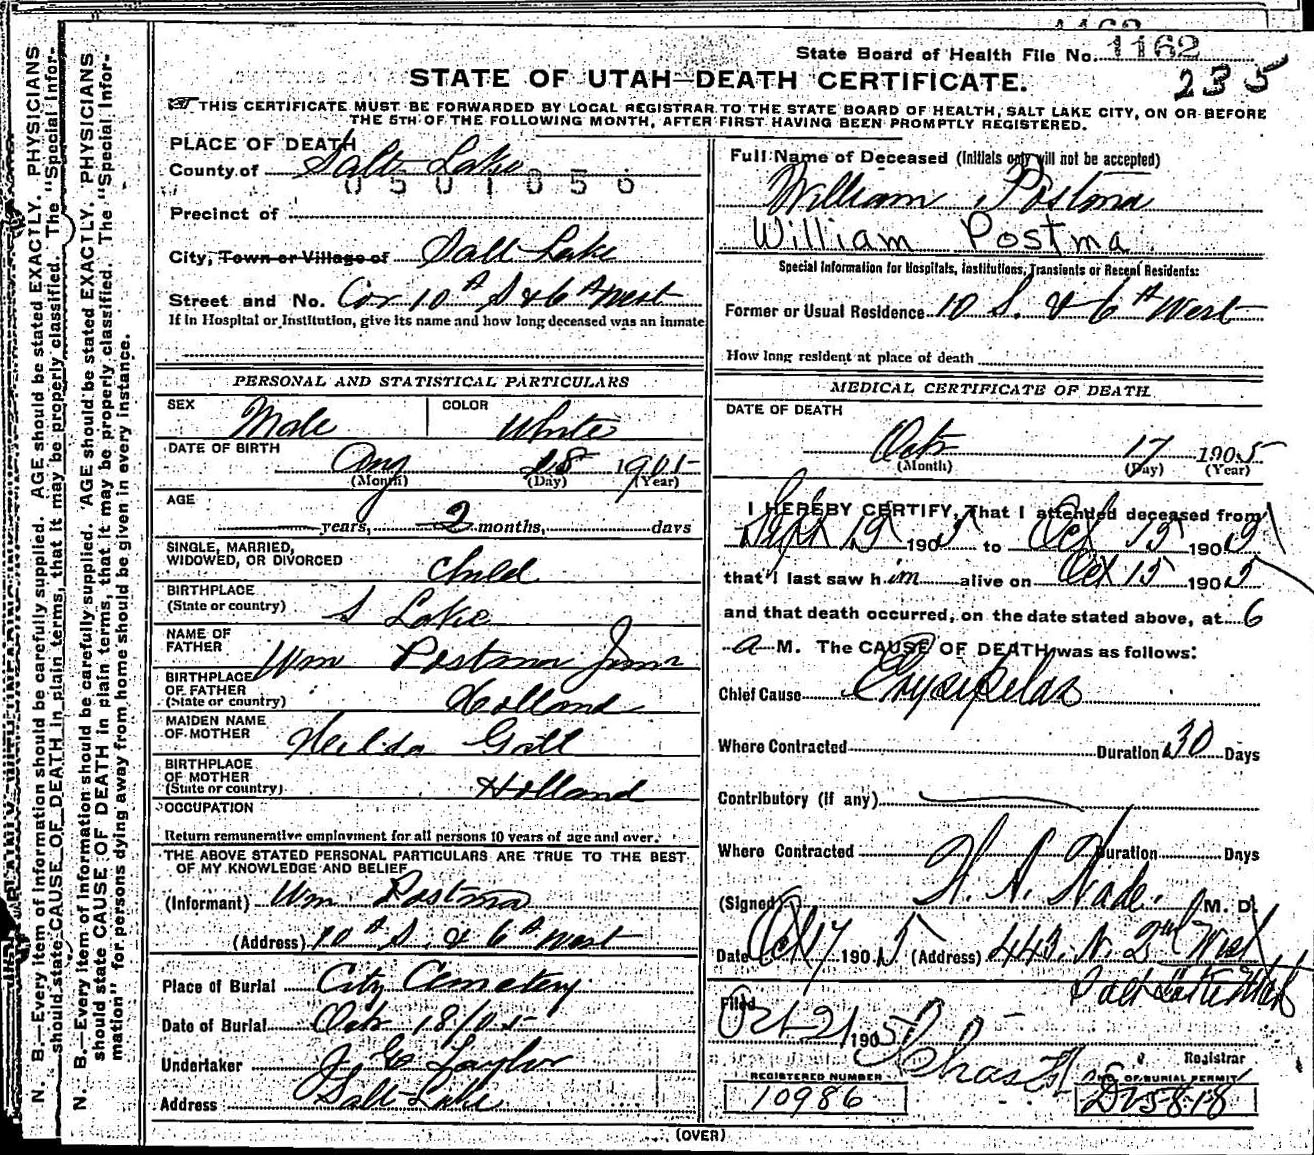 State Board of Health File No. 1162
235
STATE OF UTAH—DEATH CERTIFICATE.
THIS CERTIFICATE MUST BE FORWARDED BY LOCAL REGISTRAR TO THE STATE BOARD OF HEALTH, SALT LAKE CITY, ON OR BEFORE
THE 5TH OF THE FOLLOWING MONTH, AFTER FIRST HAVING BEEN PROMPTLY REGISTERED.
PLACE OF DEATH
County of Salt Lake
0501056
Precinct of
City, Town or Village of Salt Lake
Street and No. Cor 10th S & 6th West
If in Hospital or Institution, give its name and how long deceased was an inmate
PERSONAL AND STATISTICAL PARTICULARS
SEX Male COLOR White
DATE OF BIRTH Aug 18 1905
(Month) (Day) (Year)
AGE
years, 2 months, days
SINGLE, MARRIED,
WIDOWED, OR DIVORCED child
BIRTHPLACE
(State or country) S Lake
NAME OF
FATHER Wm Postma Junr
BIRTHPLACE
OF FATHER
(State or country) Holland
MAIDEN NAME
OF MOTHER Hilda Gall
BIRTHPLACE
OF MOTHER
(State or country) Holland
OCCUPATION
Return remunerative employment for all persons 10 years of age and over.
THE ABOVE STATED PERSONAL PARTICULARS ARE TRUE TO THE BEST
OF MY KNOWLEDGE AND BELIEF
(Informant) Wm. Postma
(Address) 10th S. & 6th West
Place of Burial City Cemetery
Date of Burial Oct 18/05
Undertaker J E Taylor
Address Salt Lake
Full Name of Deceased (Initials only will not be accepted)
William Postma
William Postma
Special Information for Hospitals, Institutions, Transients or Recent Residents:
Former or Usual Residence 10 S. & 6th West
How long resident at place of death
MEDICAL CERTIFICATE OF DEATH
DATE OF DEATH
Oct 17 1905
(Month) (Day) (Year)
I HEREBY CERTIFY, That I attended deceased from
Sept 19 1905 to Oct 15 1905
that I last saw him alive on Oct 15 1905
and that death occurred, on the date stated above, at 6
a M. The CAUSE OF DEATH was as follows:
Chief Cause Erysipelas
Where Contracted Duration 30 Days
Contributory (if any)
Where Contracted Duration Days
(Signed) H. N. Wade. M. D.
Date Oct 17 1905 (Address) 443. N. 2nd West
Salt Lake Utah
Filed
Oct 21 1905
Chas
Registrar
REGISTERED NUMBER
10986
NO. OF BURIAL PERMIT
D 5818
(OVER)
N. B.—Every item of information should be carefully supplied. AGE should be stated EXACTLY. PHYSICIANS
should state CAUSE OF DEATH in plain terms, that it may be properly classified. The "Special Infor-
N. B.—Every item of information should be carefully supplied. AGE should be stated EXACTLY. PHYSICIANS
should state CAUSE OF DEATH in plain terms, that it may be properly classified. The "Special Infor-
mation" for persons dying away from home should be given in every instance.